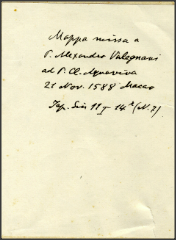 Mappa missa a
P. Alexandro Valegnani
ad P. Cl. Aquaviva
21 Nov. 1588 Macao
Jap. Sin 11 14ª (N. 7).